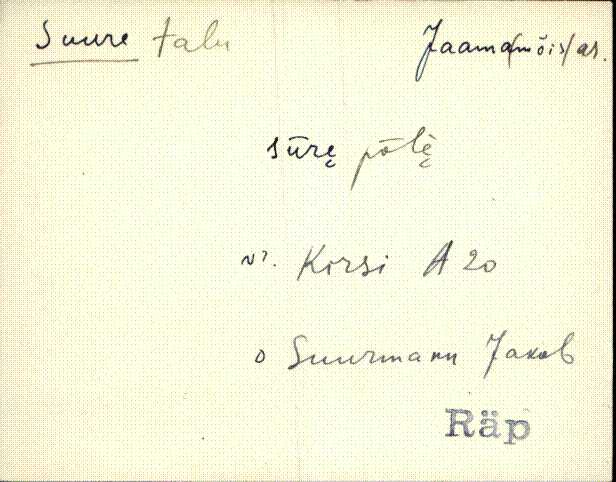 Suure talu Jaama/mõis/as.
sūrę pōlę̀
v?. Kirsi A 20
o Suurmann Jakob
Räp